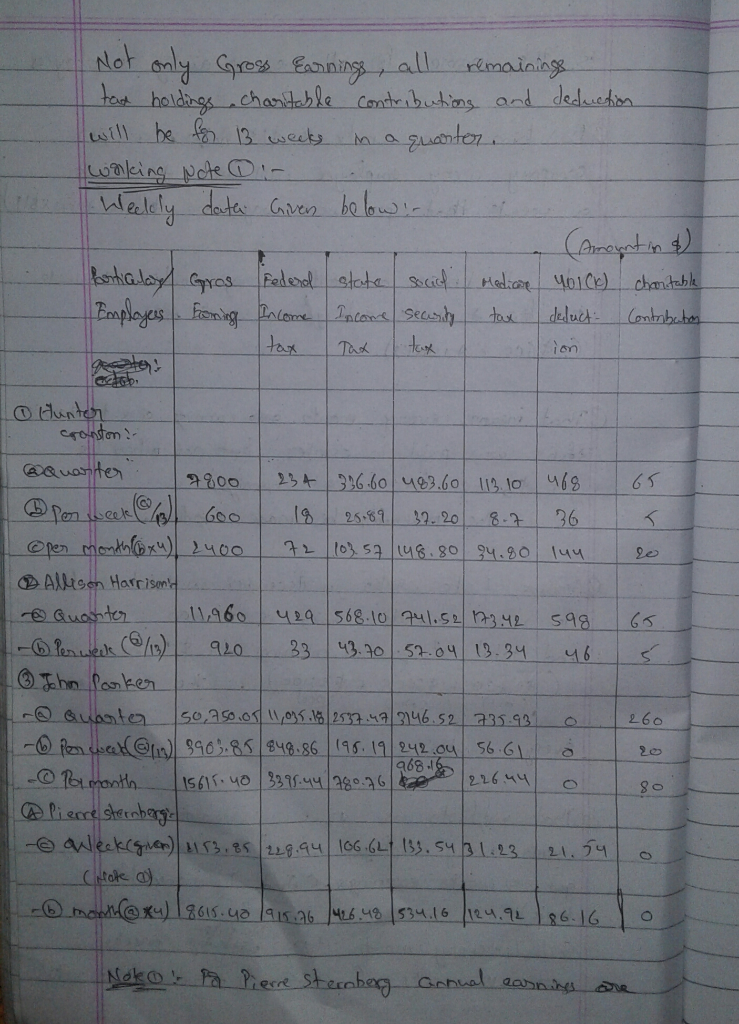 Not only Gross Earnings, all remainings
tax holdings, charitable contributions and deduction
will be for 13 weeks in a quarter.
Working Note ① :-
Weekly data Given below :-
(Amount in $)
Particulars Gros Federal State Social Medicare 401(K) charitable
Employees Earning Income Income security tax deduct- Contribution
tax Tax tax ion
① Hunter
cranston :-
ⓐ Quarter 7800 234 336.60 483.60 113.10 468 65
ⓑ Per week (ⓐ/13) 600 18 25.89 37.20 8.7 36 5
ⓒ per month (ⓑ×4) 2400 72 103.57 148.80 34.80 144 20
② Allison Harrison :-
-ⓐ Quarter 11,960 429 568.10 741.52 173.42 598 65
-ⓑ Per week (ⓐ/13) 920 33 43.70 57.04 13.34 46 5
③ John Parker
-ⓐ Quarter 50,750.05 11,035.18 2537.47 3146.52 735.93 0 260
-ⓑ Per week (ⓐ/13) 3903.85 848.86 195.19 242.04 56.61 0 20
-ⓒ Per month 15615.40 3395.44 780.76 968.16 226.44 0 80
④ Pierre Sternberg :-
-ⓐ Week (given) 2153.85 228.94 106.62 133.54 31.23 21.54 0
(Note ①)
-ⓑ month (ⓐ×4) 8615.40 915.76 426.48 534.16 124.92 86.16 0
Note ① :- Pierre Sternberg annual earnings are